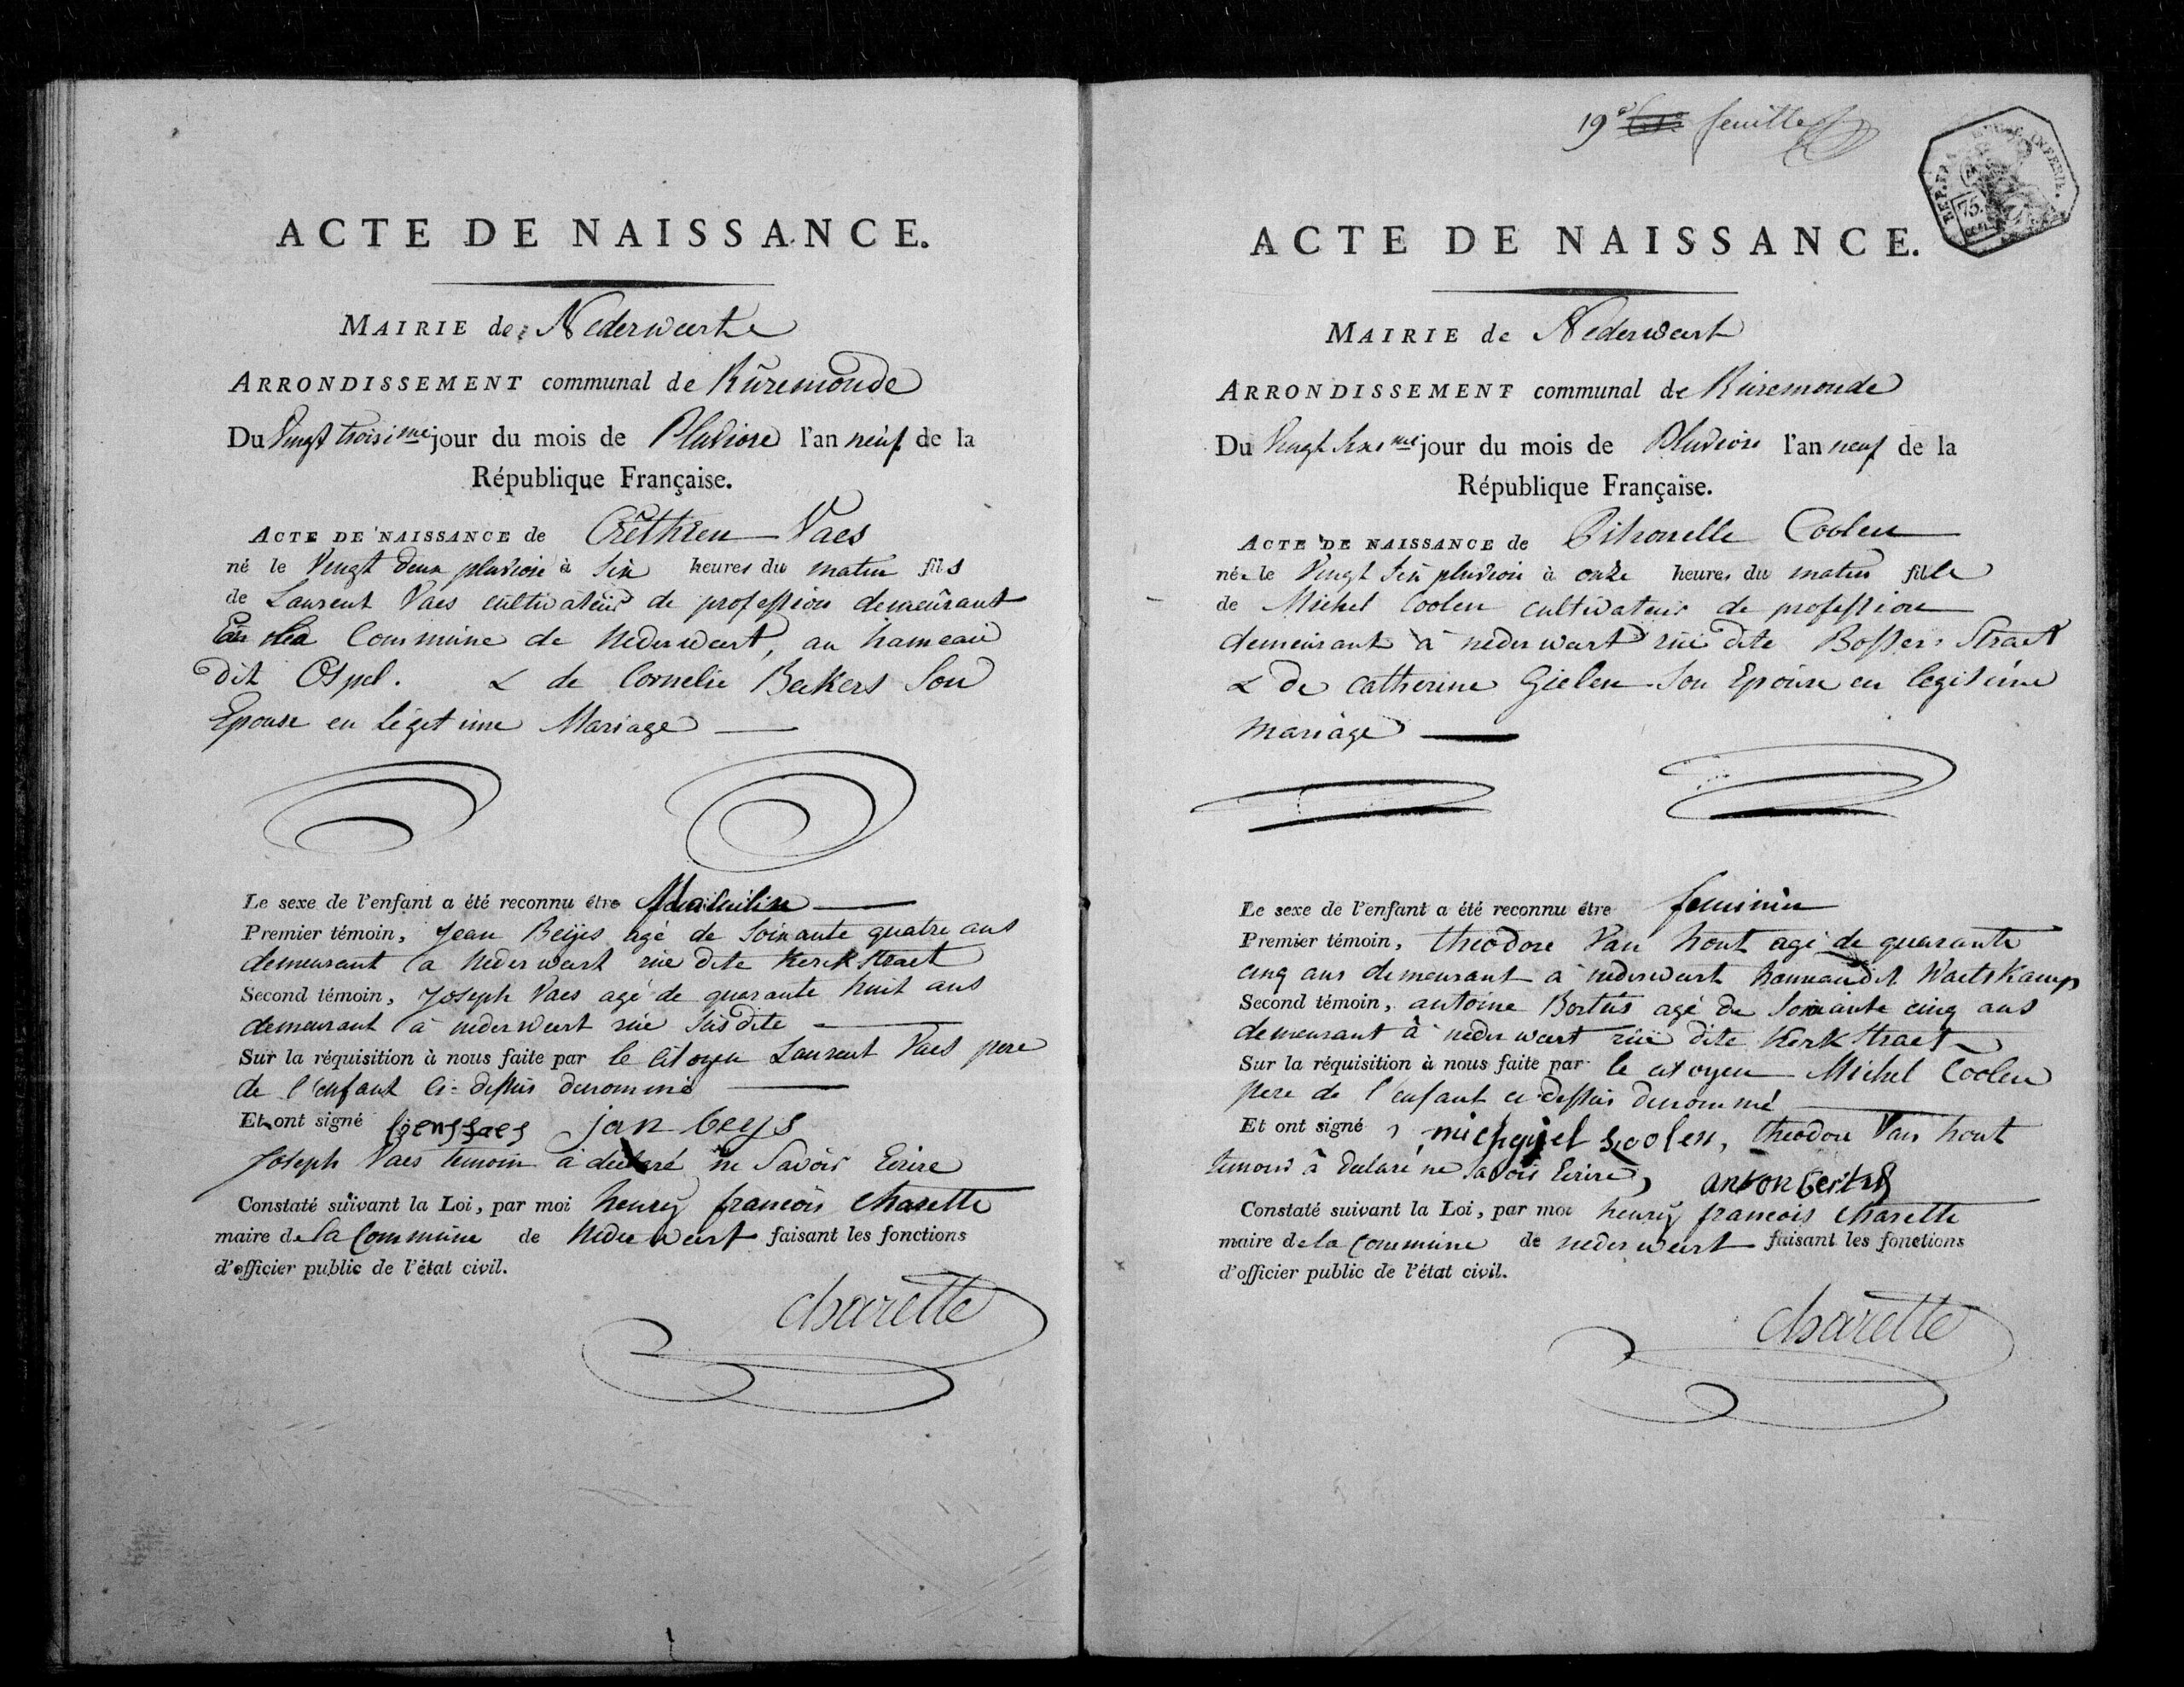 ACTE DE NAISSANCE.
MAIRIE de Nederweert
ARRONDISSEMENT communal de Rûremonde
Du Vingt troisime jour du mois de Pluviose l'an neuf de la
République Française.
ACTE DE NAISSANCE de Crêthien Vaes
né le Vingt deux pluviose à six heures du matin fils
de Laurent Vaes cultivateur de profession demeurant
Commune de Nederweert, au hameau
dit Ospel. & de Cornelie Beckers Son
Epouse en Légitime Mariage
Le sexe de l'enfant a été reconnu être
Premier témoin, Jean Beijs agé de Soixante quatre ans
demeurant a Nederweert rue dite Kerkstraet
Second témoin, Joseph Vaes agé de quarante huit ans
demeurant à nederweert rue susdite
Sur la réquisition à nous faite par le Citoyen Laurent Vaes pere
de l'enfant ci-dessus denommé
Et ont signé jan beys
Joseph Vaes temoin a declaré ne Savoir Ecrire
Constaté suivant la Loi, par moi henry francois Charette
maire de la Commune de Nederweert faisant les fonctions
d'officier public de l'état civil.
charette
19e feuille
75.
ACTE DE NAISSANCE.
MAIRIE de Nederweert
ARRONDISSEMENT communal de Rûremonde
Du Vingt sixme jour du mois de Pluviose l'an neuf de la
République Française.
ACTE DE NAISSANCE de Pitronelle Coolen
née le Vingt six pluviose à onze heures du matin fille
de Michel Coolen cultivateur de profession
demeurant à nederweert rue dite Bosser Straet
& De Catherine Gielen Son Epouse en legitime
mariage
Le sexe de l'enfant a été reconnu être feminin
Premier témoin, theodore Van hout agé de quarante
cinq ans demeurant à nederweert hameau dit Waetskamp
Second témoin, antoine Bertus agé de Soixante cinq ans
demeurant à nederweert rue dite Kerkstraet
Sur la réquisition à nous faite par le citoyen Michel Coolen
pere de l'enfant ci-dessus denommé
Et ont signé, michgijel koolen, theodore Van hout
temoin à declaré ne savoir Ecrire,
Constaté suivant la Loi, par moi henry francois Charette
maire de la Commune de nederweert faisant les fonctions
d'officier public de l'état civil.
charette